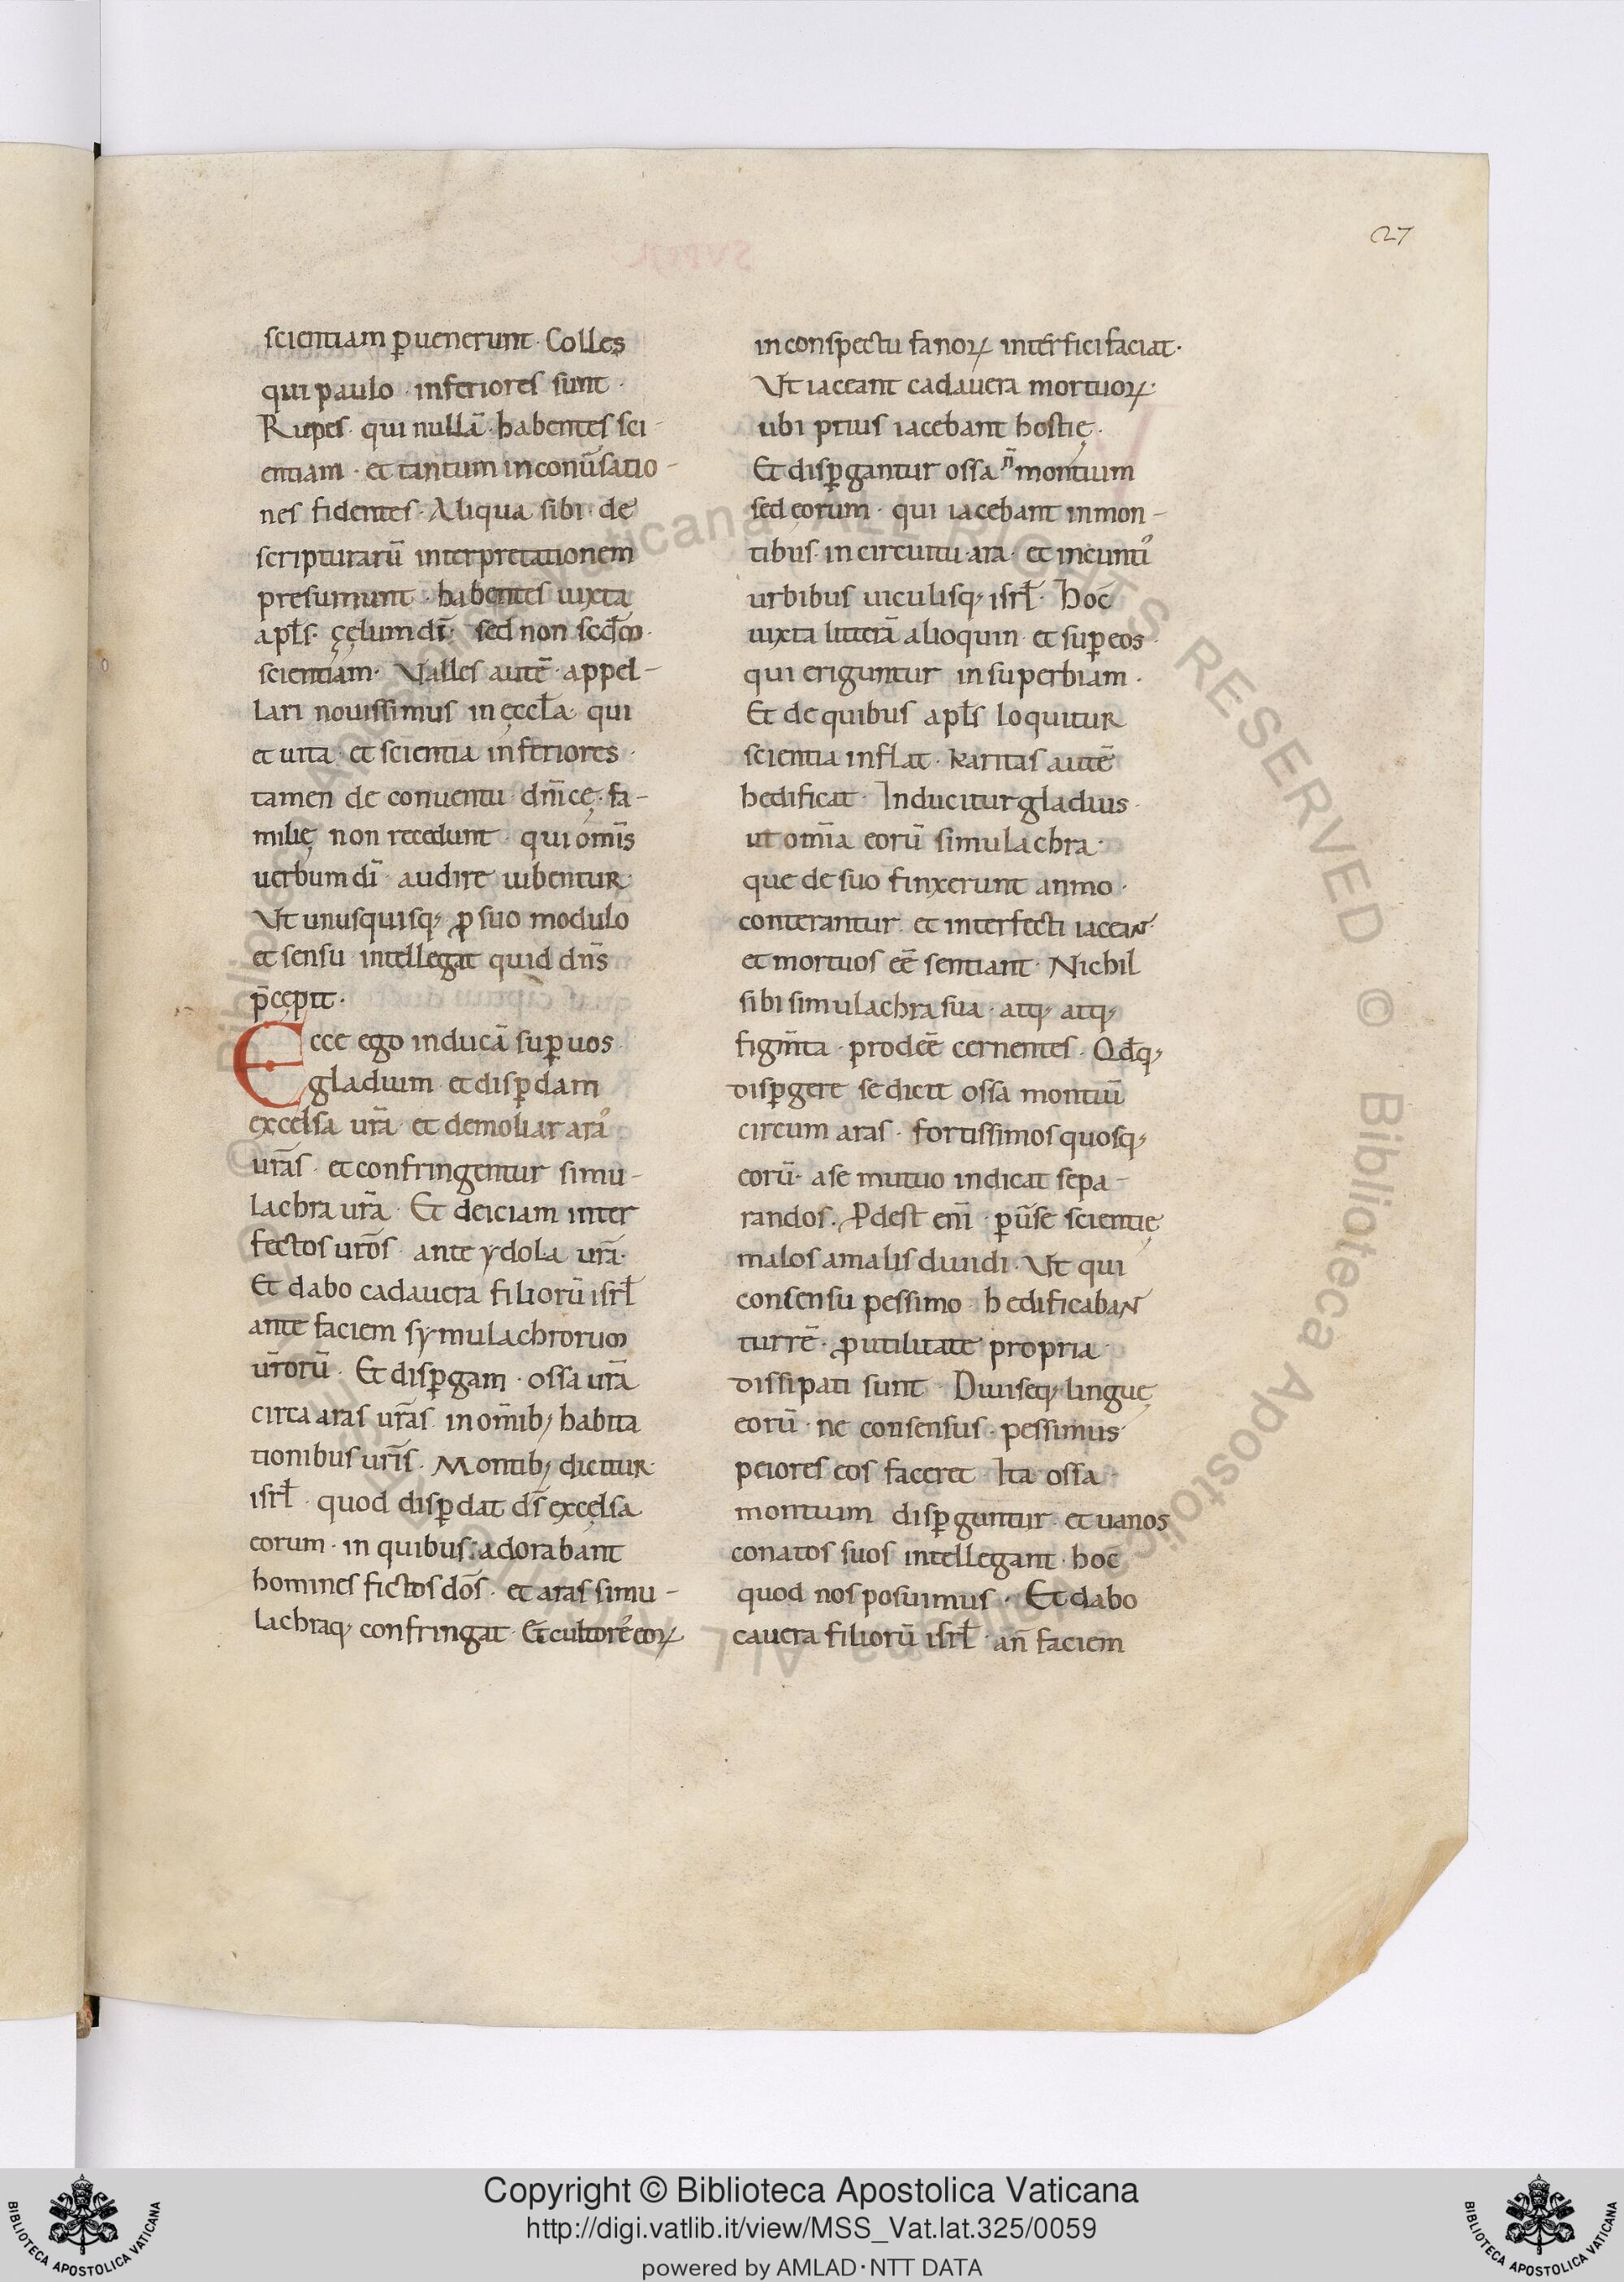 27
scientiam ꝑuenerunt · Colles
qui paulo · inferiores sunt ·
Rupes · qui nullā · habentes sci-
entiam · et tantum in conūsatio-
nes fidentes · Aliqua sibi · de
scripturarū interpretationem
presumunt · habentes iuxta
apl̄s · çęlum dī · sed non scd̄m ·
scientiam · Valles autē · appel-
lari nouissimus in ęccl̄a qui
et uita · et scientia inferiores ·
tamen de conuentu dn̄icę · fa-
milię non recedunt · qui om̄is
uerbum dī · audire iubentur
Ut unusquisq; ꝓ suo modulo
et sensu intellegat quid dn̄s
p̄cępit ·
Ecce ego inducā suꝑ uos
gladium et disꝑdam
excelsa ur̄a et demoliar aras
ur̄as · et confringentur simu-
lachra ur̄a · Et deiciam inter
fectos ur̄os · ante ydola ur̄a ·
Et dabo cadauera filiorū isrl̄
ante faciem symulachrorum
ur̄orū · Et disꝑgam · ossa ur̄a
circa aras ur̄as in om̄ib; habita
tionibus ur̄is · Montib; dicitur
isrl̄ · quod disꝑdat dš excęlsa
eorum · in quibus · adorabant
homines fictos dōs · et aras simu-
lachraq; confringat · Et cultores eoꝝ
in conspectu fanoꝝ interfici faciat ·
Ut iaceant cadauera mortuoꝝ ·
ubi prius iacebant hostię ·
Et disꝑgantur ossa n̄ montium
sed eorum · qui iacebant in mon-
tibus · in circuitu ara · et in cuntis
urbibus uiculisq; isrl̄ · Hoc
iuxta litterā alioquin · et suꝑ eos ·
qui eriguntur in superbiam ·
Et de quibus apl̄s loquitur
scientia inflat · karitas autē
hedificat · Inducitur gladius ·
ut om̄ia eorū simulachra ·
que de suo finxerunt animo ·
conterantur · et interfecti iaceant
et mortuos eē sentiant · Nichil
sibi simulachra sua · atq; atq;
figm̄ta · prodeē cernentes · Qd̄q;
disꝑgere se dicit ossa montiū
circum aras · fortissimos quosq;
eorū · a se mutuo indicat sepa-
randos · Ꝓdest enī · ꝑūse scientię
malos a malis diuidi · Ut qui
consensu pessimo · hedificabant
turrē · ꝓ utilitate propria
dissipati sunt · Diuiseq; linguę
eorū · ne consensus · pessimus
peiores eos faceret · Ita ossa ·
montium disꝑguntur · et uanos
conatos suos intellegant · hoc
quod nos posuimus · Et dabo
cauera filiorū isrl̄ · an̄ faciem
Copyright © Biblioteca Apostolica Vaticana
http://digi.vatlib.it/view/MSS_Vat.lat.325/0059
powered by AMLAD·NTT DATA